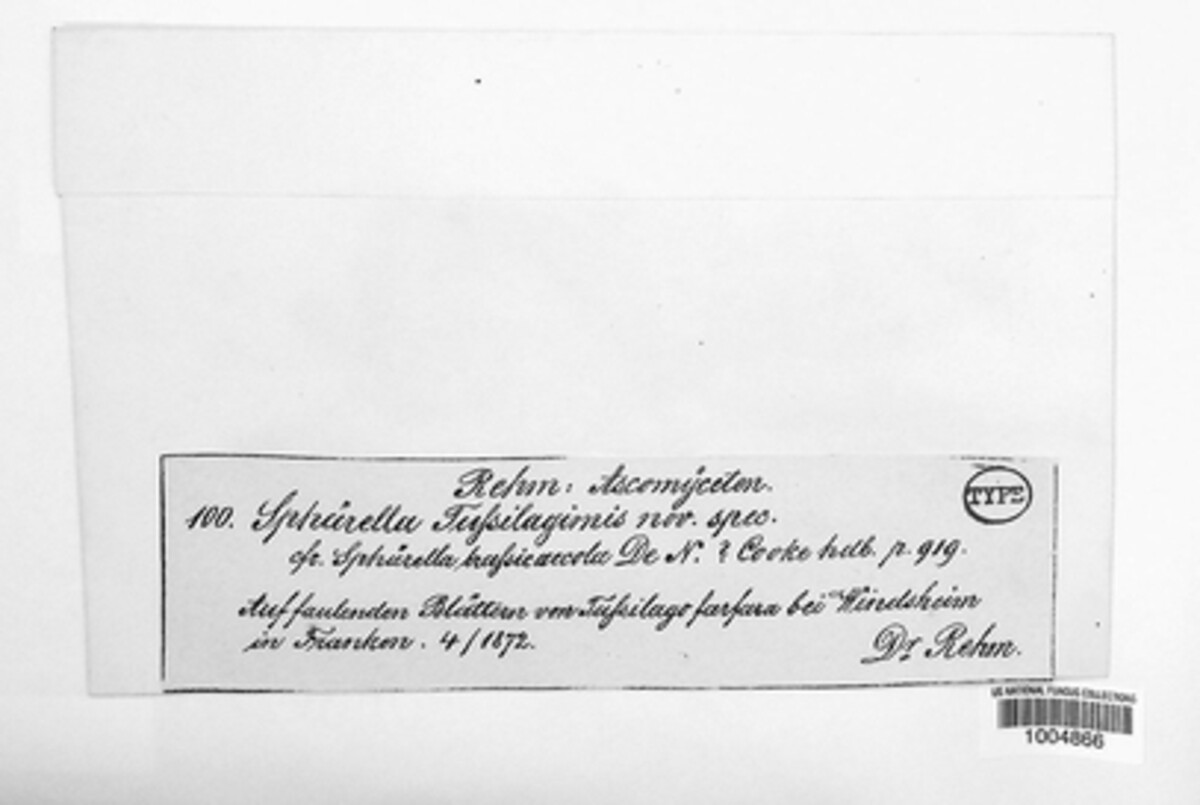 Rehm: Ascomÿceten.
TYPE
100. Sphärella Tußilaginis nov. spec.
cfr. Sphärella braßicaecola De N. ? Cooke hdb. p. 919.
Auf faulenden Blättern von Tußilago farfara bei Windsheim
in Franken. 4/1872.
Dr Rehm.
US NATIONAL FUNGUS COLLECTIONS
1004866